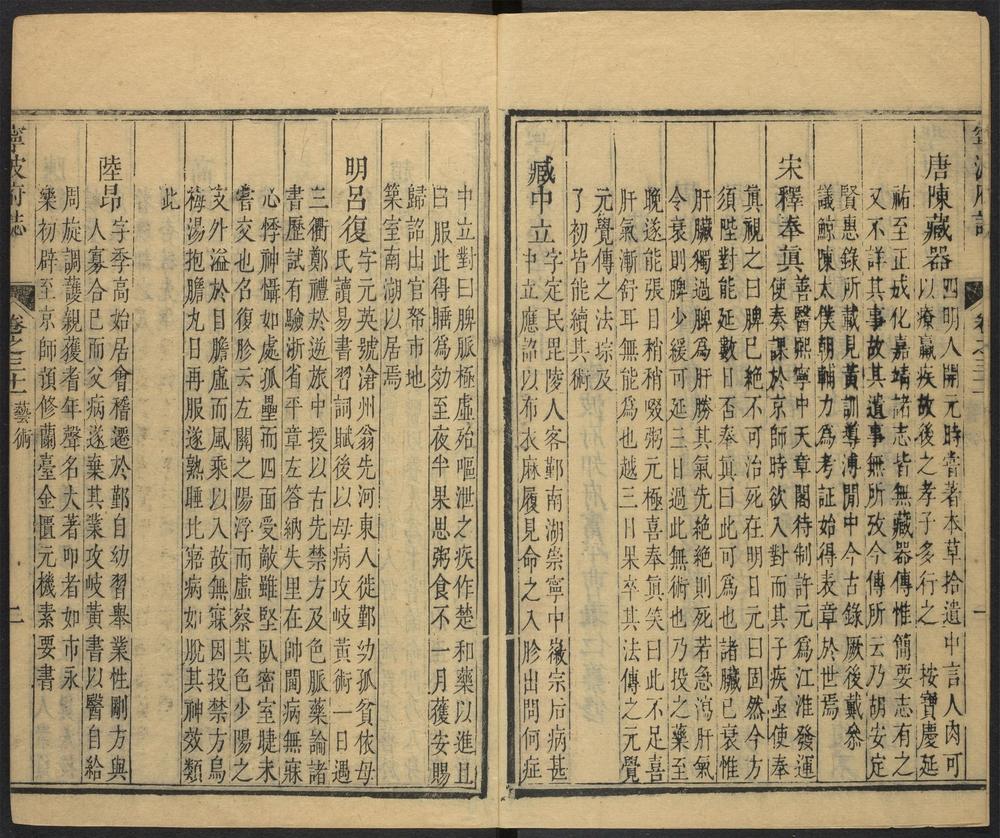 寧波府志
卷之三十一
一
唐陳藏器四明人開元時嘗著本草拾遺中言人肉可
以療羸疾故後之孝子多行之 按寶慶延
祐至正成化嘉靖諸志皆無藏器傳惟簡要志有之
又不詳其事故其遺事無所攷今傳所云乃胡安定
賢惠錄所載見黃訓導溥閒中今古錄厥後戴叅
議鯨陳太僕朝輔力為考証始得表章於世焉
宋釋奉真善醫熙寧中天章閣待制許元為江淮發運
使奏課於京師時欲入對而其子疾亟使奉
真視之曰脾已絶不可治死在明日元曰固然今方
須陛對能延數日否奉真曰此可為也諸臟已衰惟
肝臟獨過脾為肝勝其氣先絶絶則死若急瀉肝氣
令衰則脾少緩可延三日過此無術也乃投之藥至
晚遂能張目稍稍啜粥元極喜奉真笑曰此不足喜
肝氣漸舒耳無能為也越三日果卒其法傳之元覺
元覺傳之法琮及
了初皆能續其術
臧中立字定民毘陵人客鄞南湖崇寧中徽宗后病甚
中立應詔以布衣麻履見命之入胗出問何症
中立對曰脾脈極虛殆嘔泄之疾作楚 和藥以進且
曰服此得睡為効至夜半果思粥食不 一月獲安賜
歸詔出官帑市地
築室南湖以居焉
明呂復字元英號滄州翁先河東人徙鄞幼孤貧依母
氏讀易書習詞賦後以母病攻岐黃術一日遇
三衢鄭禮於逆旅中授以古先禁方及色脈藥論諸
書歷試有驗浙省平章左答納失里在帥閫病無寐
心悸神懾如處孤壘而四面受敵雖堅臥密室睫未
嘗交也名復胗云左關之陽浮而虛察其色少陽之
支外溢於目膽虛而風乘以入故無寐因投禁方烏
梅湯抱膽丸日再服遂熟睡比寤病如脫其神效類
此
陸昂字季高始居會稽遷於鄞自幼習舉業性剛方與
人寡合已而父病遂棄其業攻岐黃書以醫自給
周旋調護親獲耆年聲名大著叩者如市永
樂初辟至京師預修蘭臺金匱元機素要書
寧波府誌
卷之三十一 藝術
二